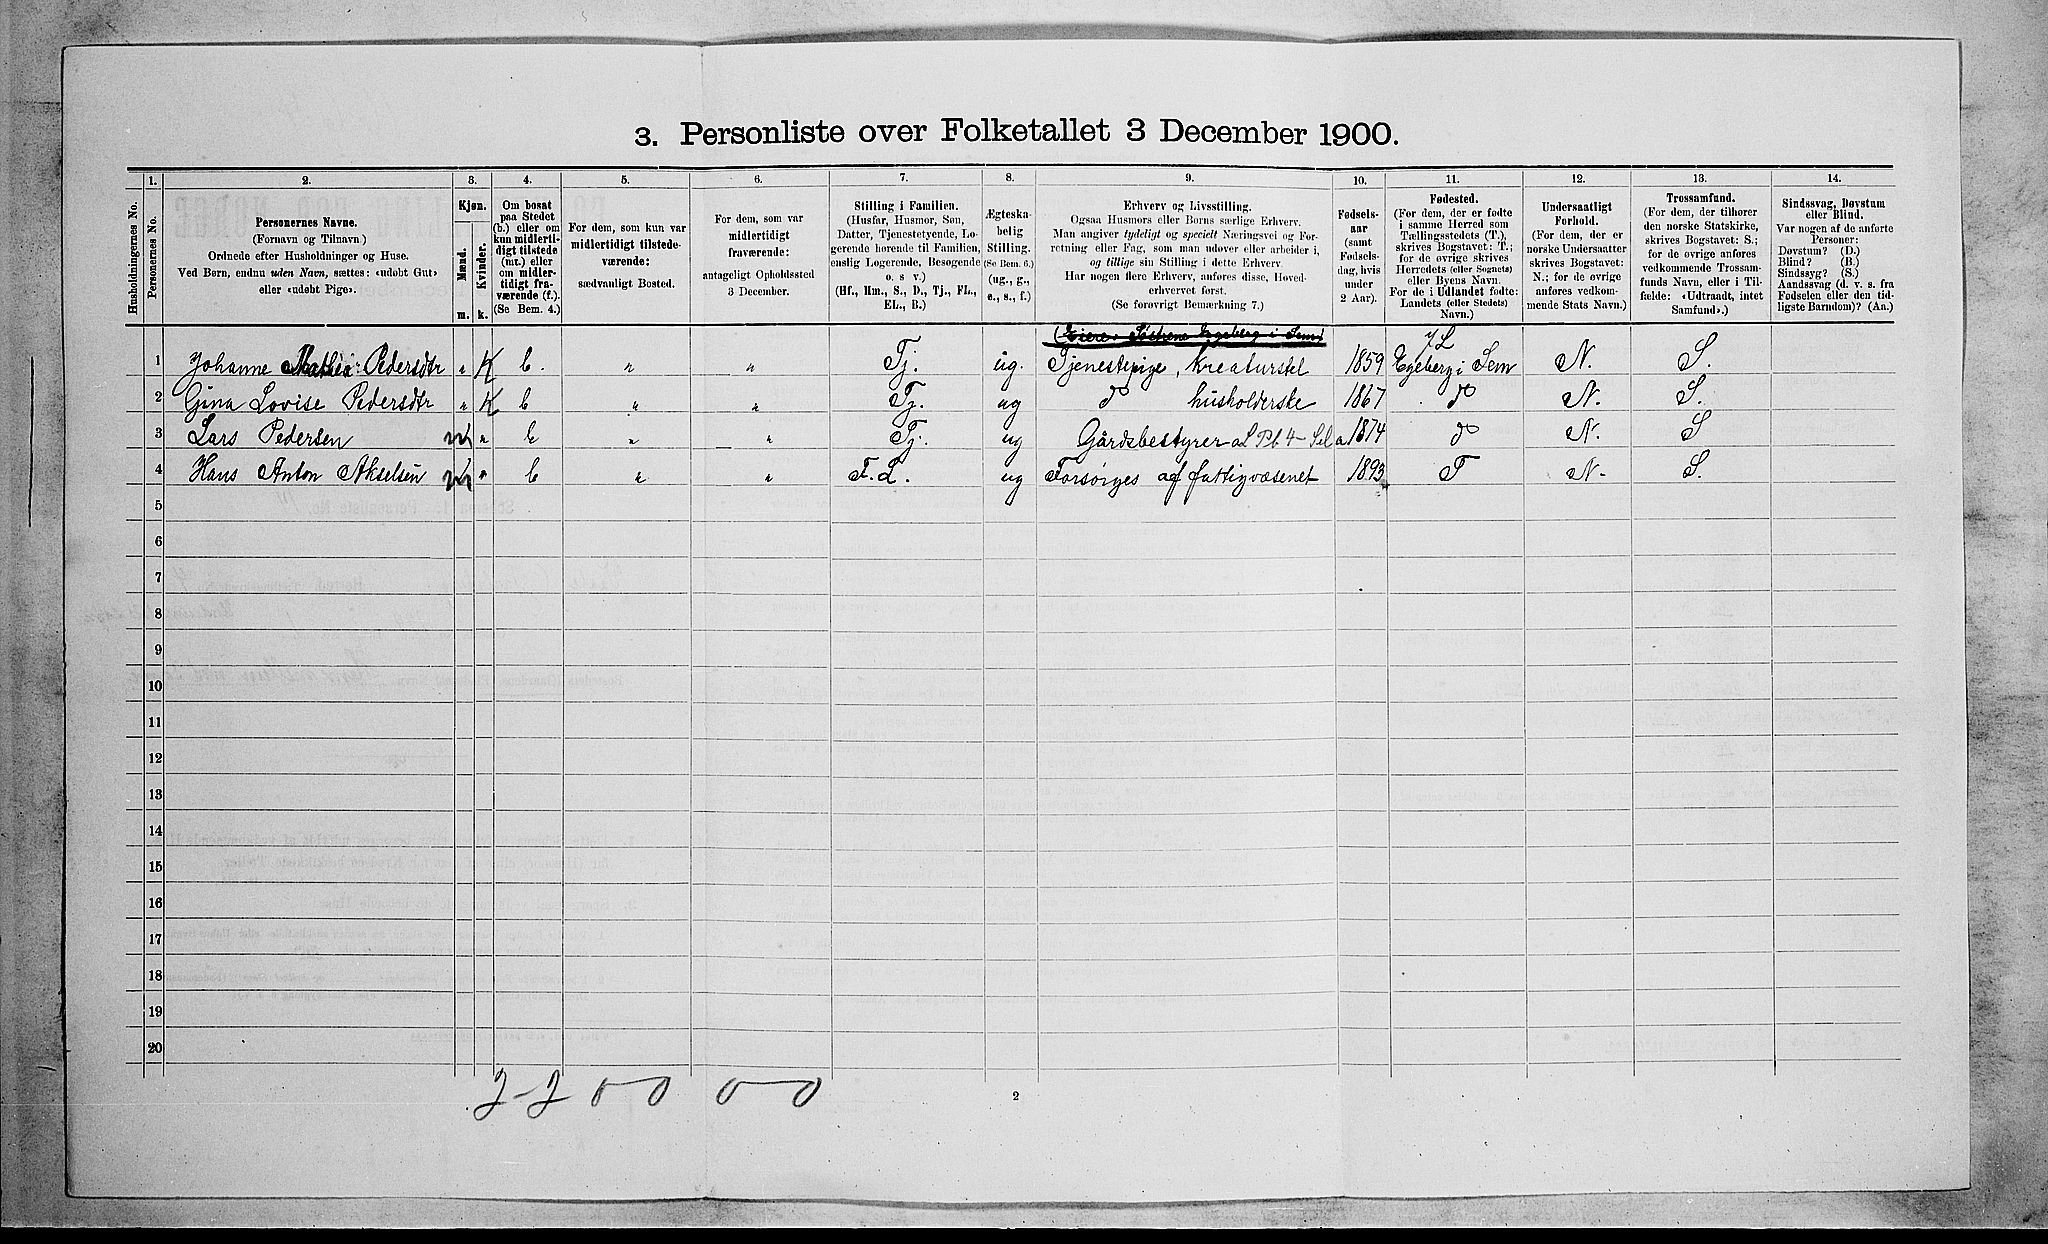 3. Personliste over Folketallet 3 December 1900.
Husholdningernes No.
1.
Personernes No.
2.
Personernes Navne.
(Fornavn og Tilnavn.)
Ordnede efter Husholdninger og Huse.
Ved Børn, endnu uden Navn, sættes: «udøbt Gut»
eller «udøbt Pige».
3.
Kjøn.
Mænd.
Kvinder.
m.
k.
4.
Om bosat
paa Stedet
(b.) eller om
kun midlerti-
digt tilstede
(mt.) eller
om midler-
tidigt fra-
værende (f.).
(Se Bem. 4.)
5.
For dem, som kun var
midlertidigt tilstede-
værende:
sædvanligt Bosted.
6.
For dem, som var
midlertidigt
fraværende:
antageligt Opholdssted
3 December.
7.
Stilling i Familien.
(Husfar, Husmor, Søn,
Datter, Tjenestetyende, Lo-
gerende hørende til Familien,
enslig Logerende, Besøgende
o. s v.)
(Hf., Hm., S., D., Tj., FL.,
EL., B.)
8.
Ægteska-
belig
Stilling.
(Se Bem. 6.)
(ug., g.,
e., s., f.)
9.
Erhverv og Livsstilling.
Ogsaa Husmors eller Børns særlige Erhverv.
Man angiver tydeligt og specielt Næringsvei og For-
retning eller Fag, som man udøver eller arbeider i,
og tillige sin Stilling i dette Erhverv.
Har nogen flere Erhverv, anføres disse, Hoved-
erhvervet først.
(Se forøvrigt Bemærkning 7.)
10.
Fødsels-
aar
(samt
Fødsels-
dag, hvis
under
2 Aar).
11.
Fødested.
(For dem, der er fødte
i samme Herred som
Tællingsstedets (T.),
skrives Bogstavet: T.;
for de øvrige skrives
Herredets (eller Sognets)
eller Byens Navn.
For de i Udlandet fødte:
Landets (eller Stedets)
Navn.)
12.
Undersaatligt
Forhold.
(For dem, der er
norske Undersaatter
skrives Bogstavet:
N.; for de øvrige
anføres vedkom-
mende Stats Navn.)
13.
Trossamfund.
(For dem, der tilhører
den norske Statskirke,
skrives Bogstavet: S.;
for de øvrige anføres
vedkommende Trossam-
funds Navn, eller i Til-
fælde: «Udtraadt, intet
Samfund».)
14.
Sindssvag, Døvstum
eller Blind.
Var nogen af de anførte
Personer:
Døvstum? (D.)
Blind? (B.)
Sindssyg? (S.)
Aandssvag (d. v. s. fra
Fødselen eller den tid-
ligste Barndom)? (Aa.)
JL
1 Johanne Mathea Pedersdtr " K b. " " Tj. ug. Tjenestepige, kreaturstel 1859 Egeberg i Sem N. S.
2 Gina Lovise Pedersdtr " K b " " Tj. ug do husholderske 1867 do N. S.
3 Lars Pedersen m " b " " Tj. ug Gårdsbestyrer 1874 do N. S
4 Hans Anton Akselsen m " b " " F.L. ug Forsørges af fattigvæsenet 1893 T N. S.
5
6
7
8
9
10
11
12
13
14
15
16
17
18
19
20
2-2 0-0 0-0
2